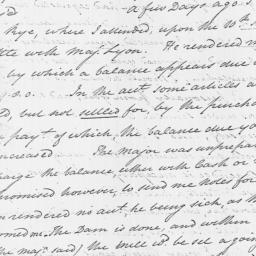 a few Days ago
Rye, where I attended, upon the 10th
with Majr Lyon. He rendered m
by which a balance appears due
In the act some articles a
d, but not settled for, by the purcha
payt of which, the balance due yo
increased The Major was unprepar
arge the balance, either with Cash or
promised however, to send me Notes for
rendered no act, he being sick, as th
omed me. The Dam is done, and within
the majr said) the mill wd be set a going